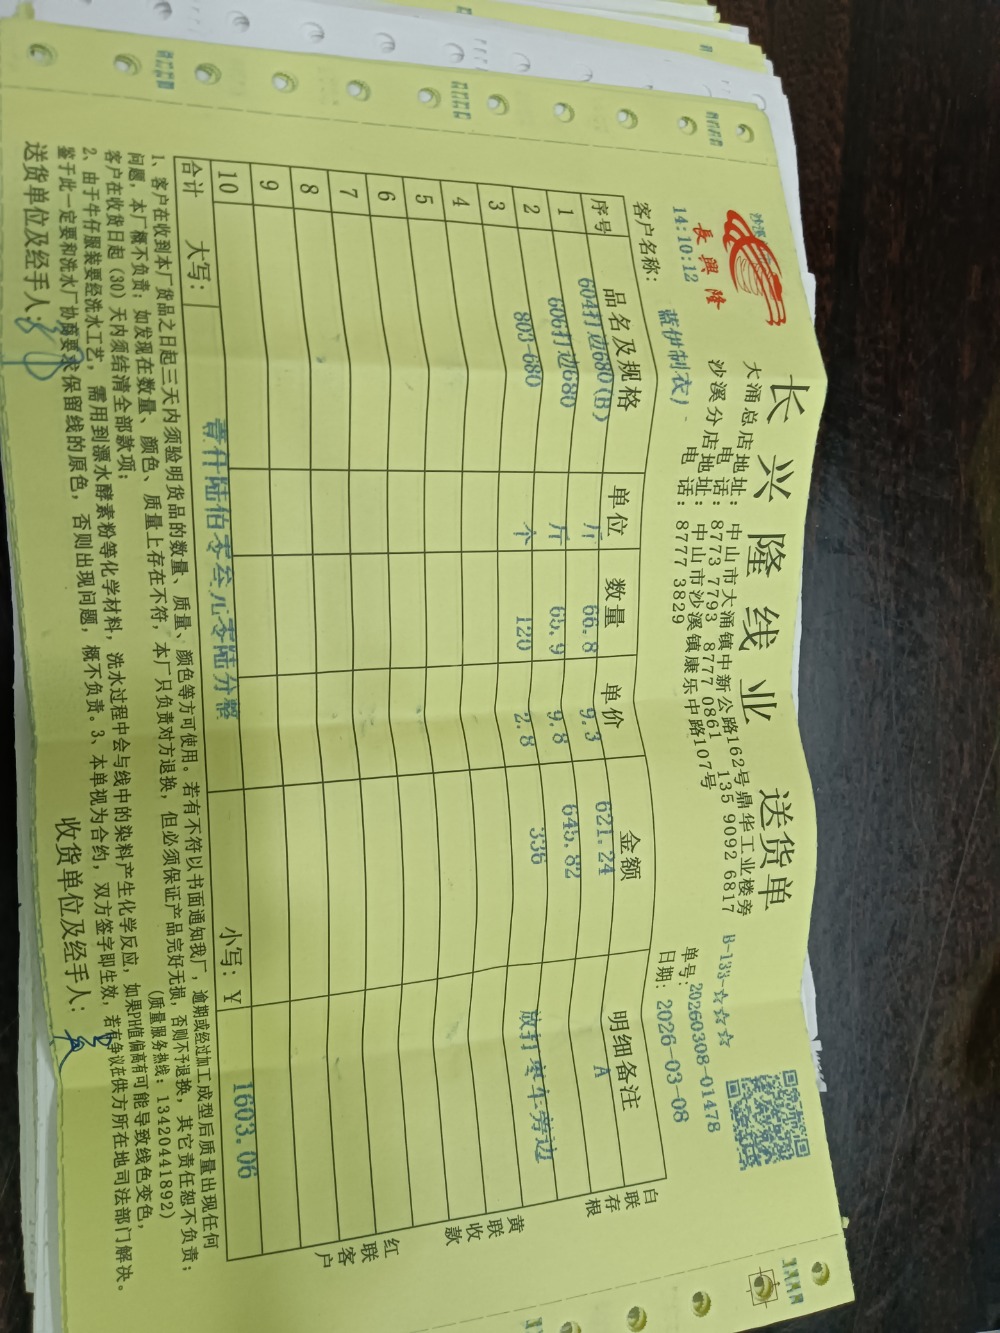 沙溪
長興隆
14:10:12
长兴隆线业 送货单
大涌总店地址：中山市大涌镇中新公路162号鼎华工业楼旁
电话：8773 7793 8777 0861 135 9092 6817
沙溪分店地址：中山市沙溪镇康乐中路107号
电话：8777 3829
B-133-☆☆☆
单号：20260308-01478
客户名称：蓝伊制衣厂
日期：2026-03-08
序号 品名及规格 单位 数量 单价 金额 明细备注
1 604打边680(B) 斤 66.8 9.3 621.24 A
2 606打边680 斤 65.9 9.8 645.82
3 803-680 个 120 2.8 336 放打枣车旁边
4
5
6
7
8
9
10
合计 大写：壹仟陆佰零叁元零陆分整 小写：￥ 1603.06
白联存根
黄联收款
红联客户
1、客户在收到本厂货品之日起三天内须验明货品的数量、质量、颜色等方可使用。若有不符以书面通知我厂，逾期或经过加工成型后质量出现任何
问题，本厂概不负责；如发现在数量、颜色、质量上存在不符，本厂只负责对方退换，但必须保证产品完好无损，否则不予退换，其它责任恕不负责；
客户在收货日起（30）天内须结清全部款项； （质量服务热线：13420441892）
2、由于牛仔服装要经洗水工艺，需用到漂水酵素粉等化学材料，洗水过程中会与线中的染料产生化学反应，如果PH值偏高有可能导致线色变色，
鉴于此一定要和洗水厂协商要求保留线的原色，否则出现问题，概不负责。3、本单视为合约，双方签字即生效，若有争议在供方所在地司法部门解决。
送货单位及经手人： 收货单位及经手人：